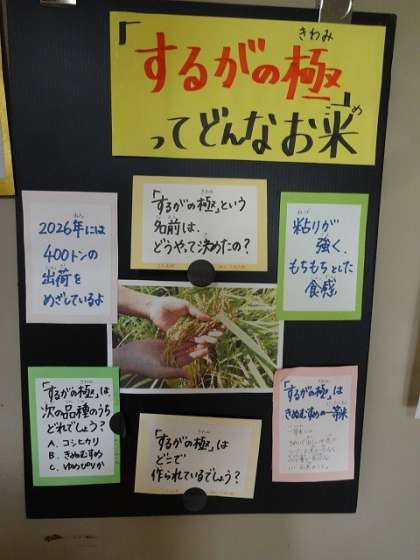 「するがの極」
きわみ
ってどんなお米
め
2026年には
ねん
400トンの
出荷を
めざしているよ
「するがの極」という
きわみ
名前は、
どうやって決めたの？
粘りが
ねば
強く、
もちもちとした
食感
「するがの極」は、
きわみ
次の品種のうち
どれでしょう？
A. コシヒカリ
B. きぬむすめ
C. ゆめぴりか
「するがの極」は
きわみ
どこで
作られているでしょう？
「するがの極」は
きわみ
きぬむすめの一等米